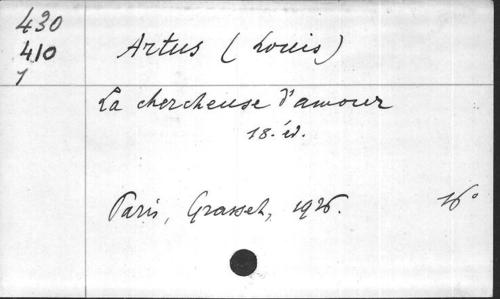 430
410
1
Artus (Louis)
La chercheuse d'amour
18. éd.
Paris, Grasset, 1926. 16°